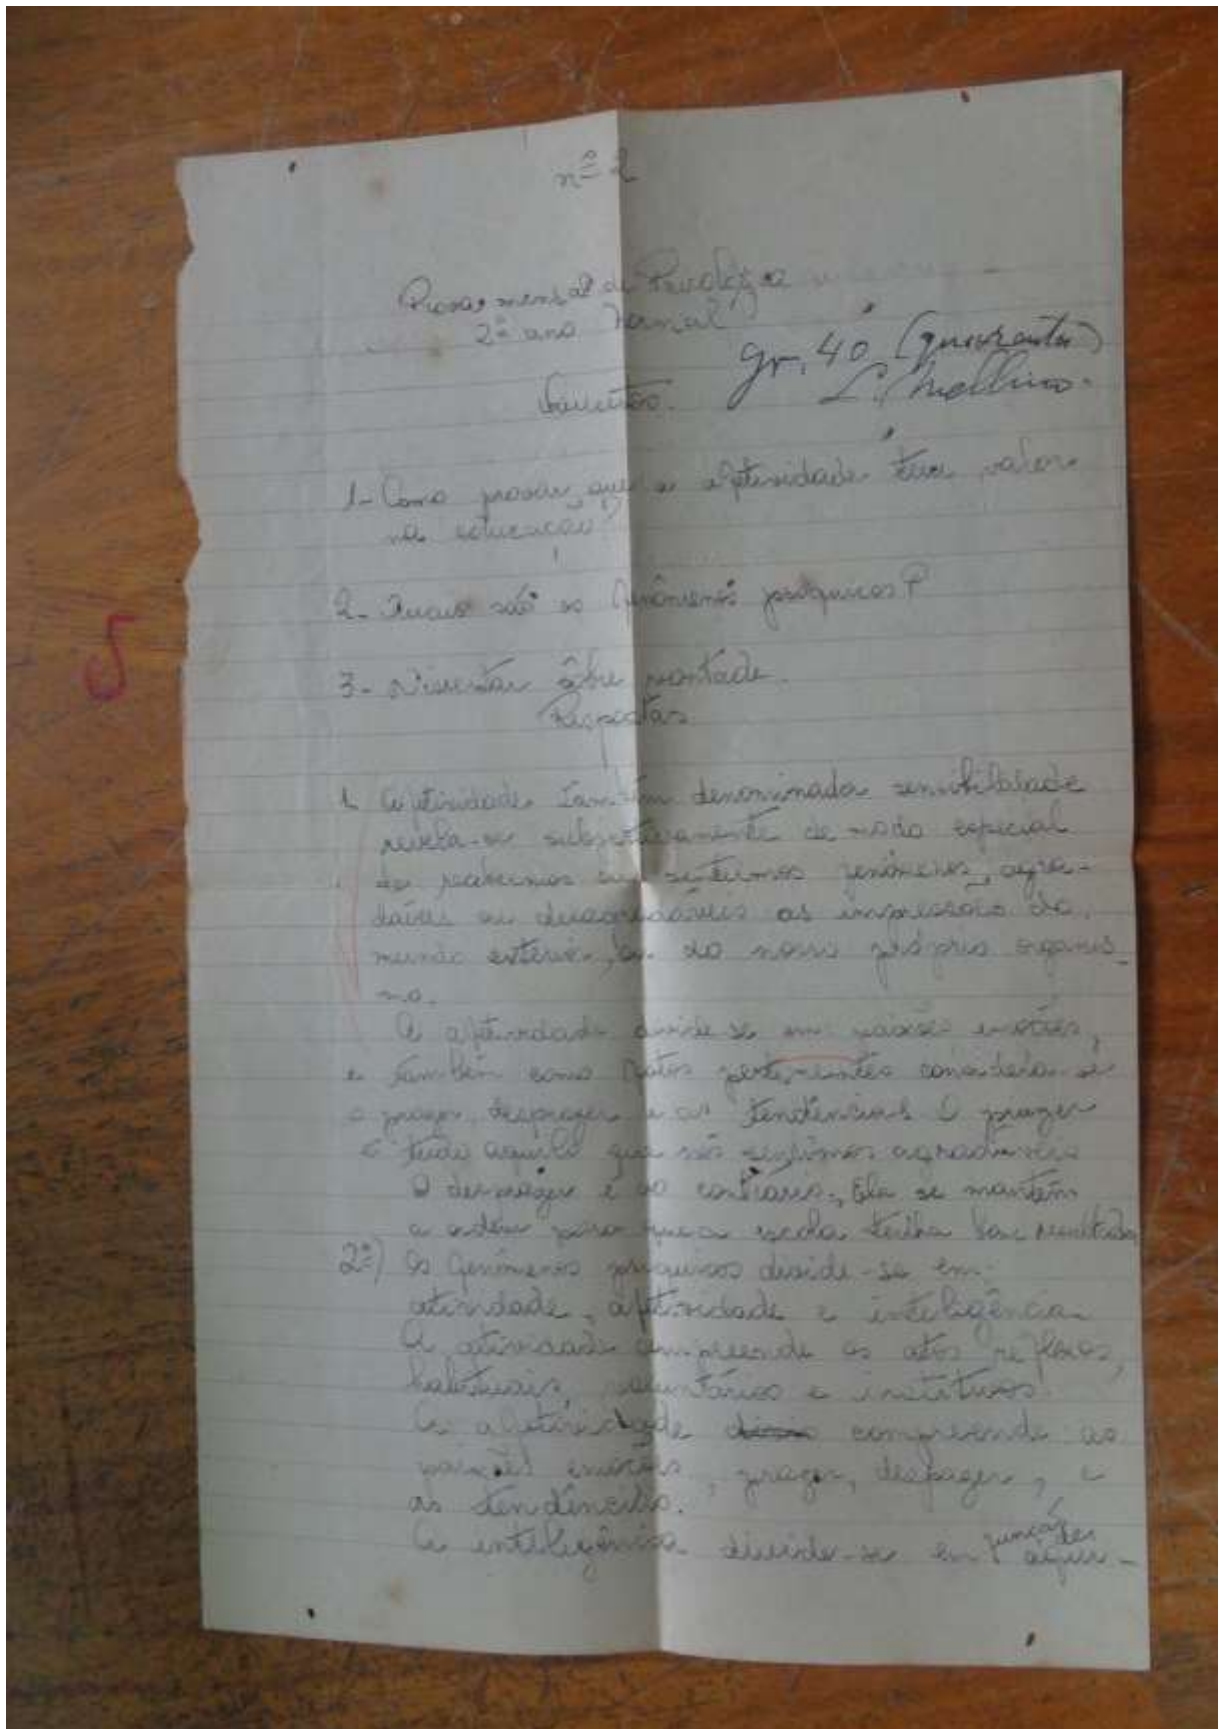 nº 2
Prova mensal de Psicologia
2º ano Normal
gr. 40 (quarenta)
Questões.
1- Como provar que a afetividade tem valor
na educação?
2- Quais são os fenômenos psíquicos?
3- Dissertar sôbre vontade.
Respostas
1 Afetividade também denominada sensibilidade
revela-se subjetivamente de modo especial
de recebermos ou sentirmos fenômenos, agra-
dáveis ou desagradáveis as impressões do
mundo exterior, ou do nosso próprio organis-
mo.
A afetividade divide-se em paixões emoções,
e também como fatos pertencentes considera-se
o prazer, desprazer e as tendencias O prazer
é tudo aquilo que nós sentimos agradáveis
O desprazer é ao contrario. Ela se mantém
a ordem para que a escola tenha bom resultado
2º) Os fenômenos psíquicos divide-se em:
atividade, afetividade e inteligência
A atividade compreende os atos reflexos,
habituais, voluntários e institivos.
A afetividade compreende as
paixões emoções, prazer, desprazer, e
as tendências.
A inteligência divide-se em funções de aqui-